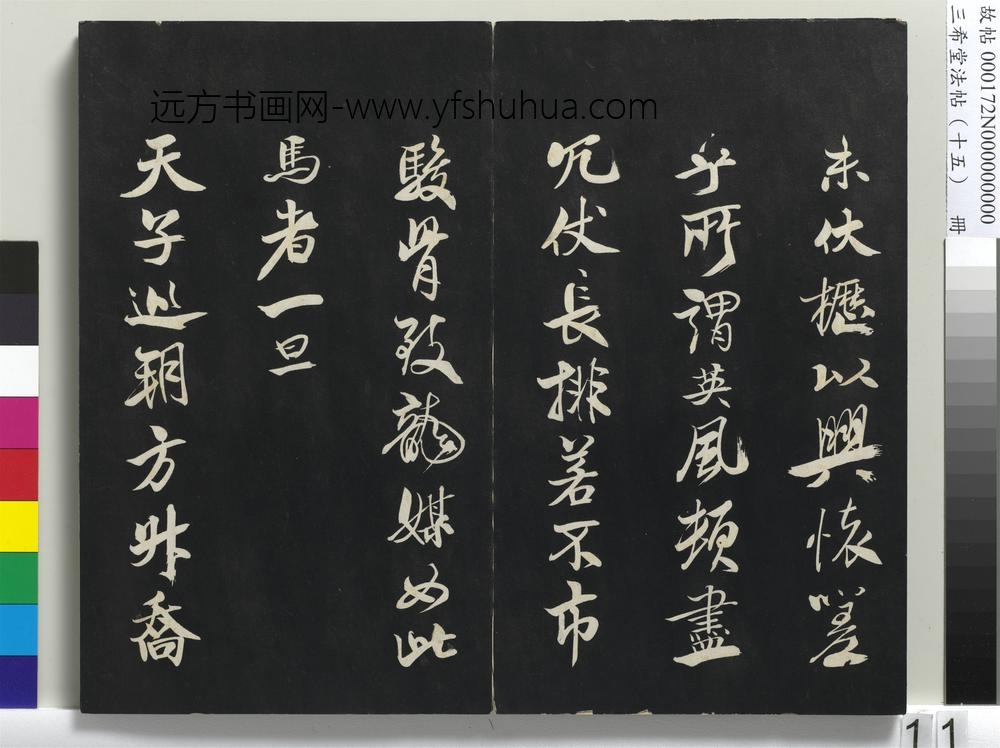 远方书画网-www.yfshuhua.com
故帖 000172N000000000
三希堂法帖（十五） 冊
未伏櫪以興懷嗟
乎所謂英風頓盡
冗仗長排若不市
駿骨致龍媒如此
馬者一旦
天子巡朔方升喬
11